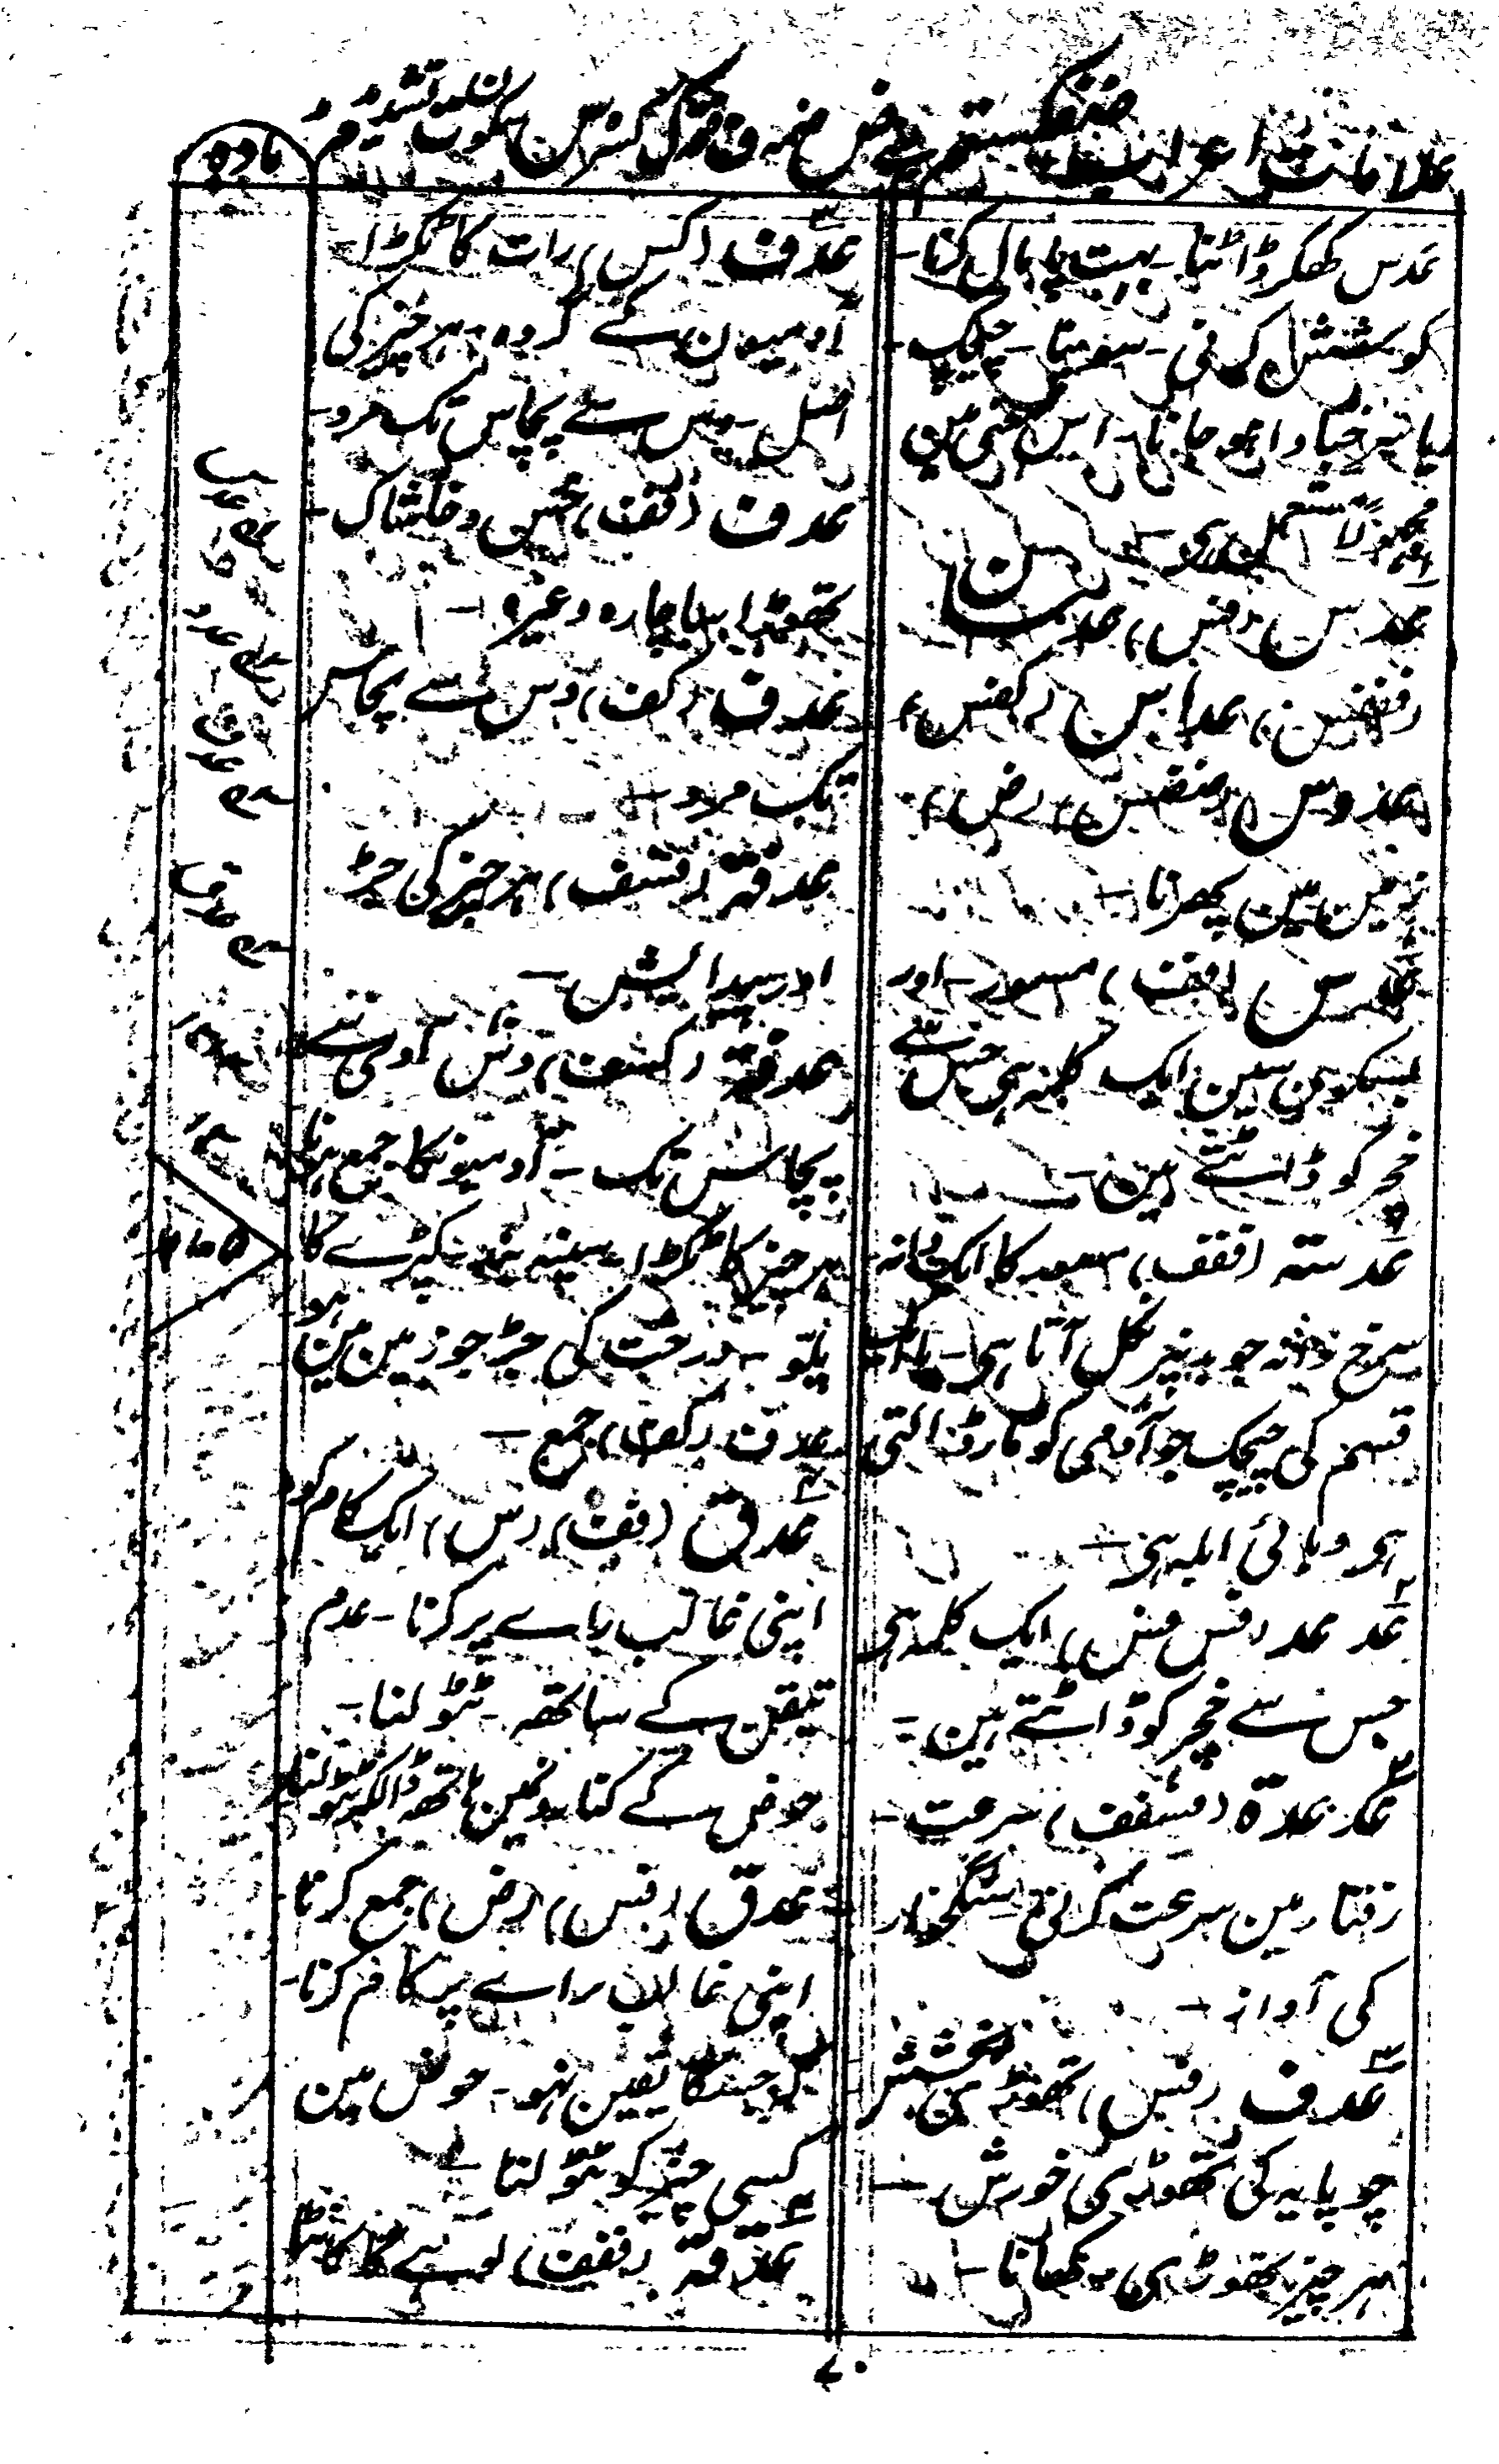 علامات اعراب ض ضمہ ف فتحہ ک کسرہ س سکون ش تشدید م
مادہ
عدس کھکر ڈانٹنا۔ بہت پامال کرنا۔
کوشش کرنی۔ سونتنا۔ چیچک
ہو جانا۔ اس معنی مین
مجہولاً مستعمل ہی۔
عدس (فس) عدسان
(ففس)، عداس (کفس)،
عدوس (ضفس) (ض)،
زمین مین پھرنا۔
عدس (فف) مسور۔ اور
بسکون سین ایک کلمہ ہی جس سے
خچر کو ڈانٹتے ہین۔
عدستہ (ففف)، مسور کا ایک دانہ۔
سرخ دانہ جو بدنپر نکل آتا ہی۔
قسم کی چیچک جو آدمی کو مار ڈالتی
ہی وبائی ابلہ ہی۔
عد عد (فس فس) ایک کلمہ ہی
جس سے خچر کو ڈانٹتے ہین۔
عدعدۃ (فسفف) سرعت۔
رفتار مین سرعت کرنی سنگخوار
کی آواز۔
عدف (فس) تھوڑی بخشش
چوپایہ کی تھوڑی خورش۔
ہر چیز تھوڑی کھانا۔
عدف (کس) رات کا ٹکڑا۔
آدمیون کے گروہ۔ ہر چیز کی
اصل۔ بیس سے پچاس تک مرد۔
عدف (فف) خس و خاشاک۔
تھوڑا سا چارہ وغیرہ۔
عدف (کف) دس سے پچاس
تک مرد۔
عدفتہ (فسف) ہر چیز کی جڑ
اور پیدایش۔
عدفتہ (کسف) دس آدمی سے
پچاس تک۔ آدمیونکا جمع ہونا
ہر چیز کا ٹکڑا۔ سینہ بند۔ کپڑے کا
پلو۔ درخت کی جڑ جو زمین مین ہو
عدف (کف) جمع۔
عدق (فف) (س) ایک کام کو
اپنی غالب راے پر کرنا۔ عدم
تیقن کے ساتھ۔ ٹٹولنا۔
حوض کے کنارونمین ہاتھ ڈالکر ٹٹولنا
عدق (فس) (ض) جمع کرنا
اپنی غالب راے پر کام کرنا۔
جسکا یقین نہو۔ حوض مین
کسی چیز کو ٹٹولنا۔
عدقتہ (ففف) لوہے کا کانٹا
۷۰